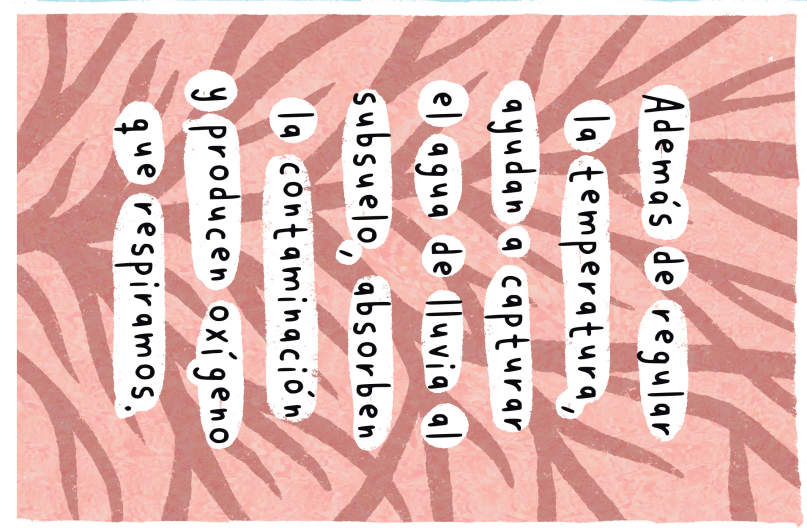 Además de regular
la temperatura,
ayudan a capturar
el agua de lluvia al
subsuelo, absorben
la contaminación
y producen oxígeno
que respiramos.